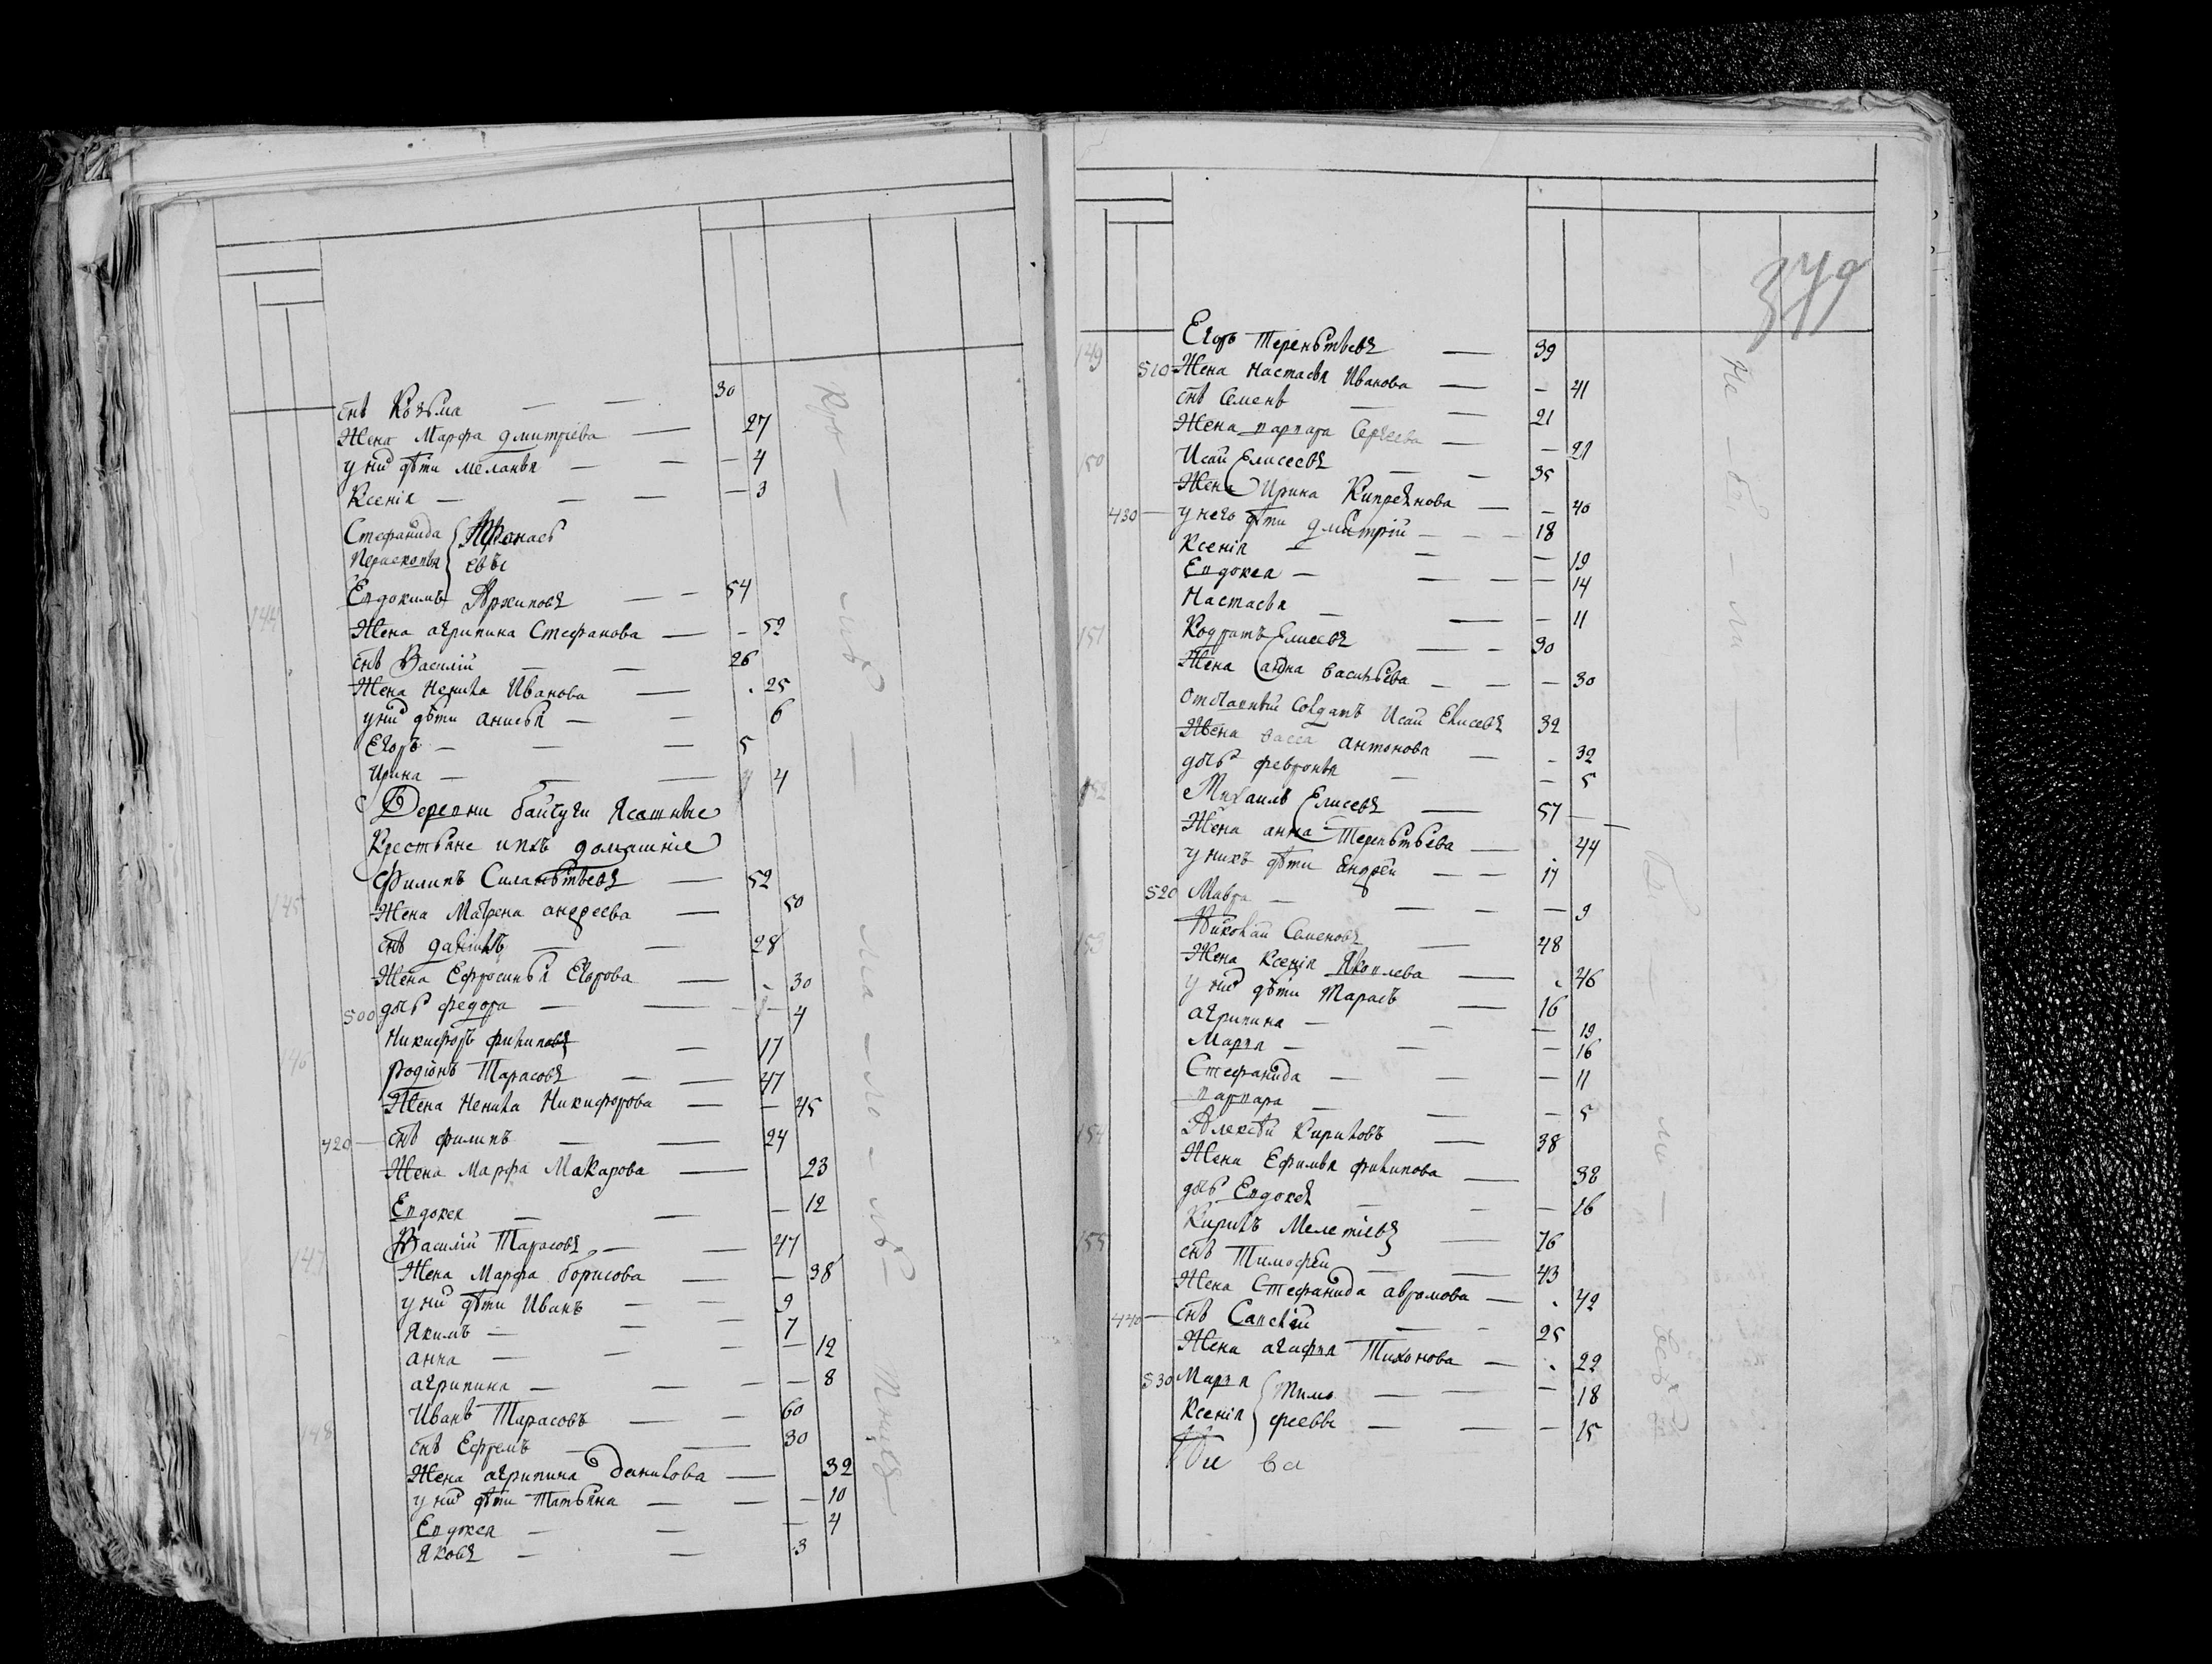 снъ Козьма — — 30
Жена Марфа дмитріева — 27
у них дѣти меланья — — — 4
Ксенія — — — — 3
Стефанида Афанась
Параскопья евы
144 Евдокимъ Архиповъ — — 54
Жена агрипина Стефанова — - 52
снъ Василій — — 26
Жена Ненила Иванова — 25
у них дѣти анисья — — 6
Егоръ — — — 5
Ирина — — — 4
Деревни байчуги Ясашные
Крестьяне ихъ домашніе
145 Филипъ Силантьевъ — 52
Жена Матрена андреева — 50
снъ данилъ — — 28
Жена Ефросинья Егорова — 30
500 дочь федора — — — 4
146 Никифоръ филиповъ — 17
Родіонъ Тарасовъ — — 47
Жена Ненила Никифорова — — 45
420 снъ филипъ — — 24
Жена Марфа Макарова — 23
Евдокея — — — 12
147 Василій Тарасовъ — — 47
Жена Марфа борисова — — 38
у них дѣти Иванъ — — 9
Якимъ — — — 7
анна — — — 12
агрипина — — — 8
148 Иванъ Тарасовъ — — 60
снъ Ефремъ — — 30
Жена агрипина данилова — 32
у них дѣти Татьяна — — — 10
Евдокея — — — 4
Яковъ — — 3
379
149 Егоръ Терентьевъ — 39
510 Жена Настасья Иванова — — 41
снъ Семенъ — — 21
Жена варвара Сергеева — — 21
150 Исаи Елисеевъ — — 35
Жена Ирина Кипреянова — — 40
430 у него дѣти дмитрій — — — 18
Ксенія — — — 19
Евдокея — — — — 14
Настасья — — — 11
151 Кодратъ Елисевъ — — 30
Жена анна васильева — — — 30
отставный Солдатъ Исаи Елисевъ 32
Жена васса антонова — - 32
дочь февронья — — 5
152 Михаилъ Елисевъ — 57
Жена анна Терентьева — 44
у нихъ дѣти андрей — — 17
520 Мавра — — — — 9
153 Николай Семеновъ — 48
Жена Ксенія Яковлева — 46
у них дѣти Тарасъ — 16
агрипина — — — 19
Марья — — — 16
Стефанида — — — 11
варвара — — — 5
154 Алексѣй Кириловъ — 38
Жена Ефимья филипова — 38
дочь Евдокея — — — 16
155 Кирилъ Мелетіевъ — 76
снъ Тимофѣй — — 43
Жена Стефанида аврамова — 42
440 снъ Савелій — — 25
Жена агафья Тихонова — 22
530 Марья Тимо — — — 18
Ксенія феевы — — — 15